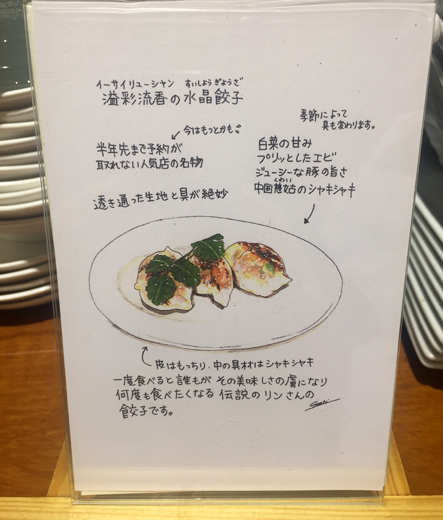 イーサイリューシャン すいしょうぎょうざ
溢彩流香の水晶餃子
今はもっとかも。
半年先まで予約が
取れない人気店の名物
透き通った生地と具が絶妙
季節によって
具も変わります。
白菜の甘み
プリッとしたエビ
ジューシーな豚の旨さ
くわい
中国慈姑のシャキシャキ
皮はもっちり、中の具材はシャキシャキ
一度食べると誰もが その美味しさの虜になり
何度も食べたくなる 伝説のリンさんの
餃子です。